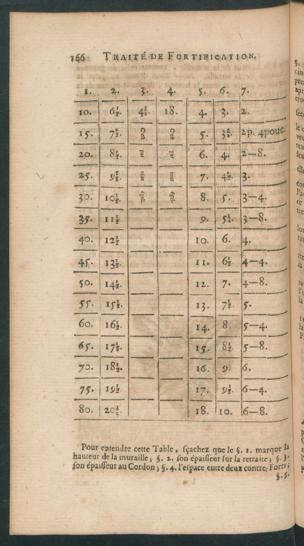 166 TRAITÉ DE FORTIFICATION.
1. 2. 3. 4. 5. 6. 7.
10. 6½. 4½. 18. 4. 3. 2.
15. 7½. 5. 2p. 4pouc.
20. 8½. 6. 4. 2—8.
25. 9½. 7. 4½. 3.
30. 10½. 8. 5. 3—4.
35. 11½ 9. 5½. 3—8.
40. 12½ 10. 6. 4.
45. 13½. 11. 6½ 4—4.
50. 14½. 12. 7. 4—8.
55. 15½. 13. 7½ 5.
60. 16½. 14. 8. 5—4.
65. 17½. 15. 8½ 5—8.
70. 18½. 16. 9. 6.
75. 19½ 17. 9½. 6—4.
80. 20½ 18. 10. 6—8.
Pour entendre cette Table, sçachez que le §. 1. marque la
hauteur de la muraille; §. 2. son épaisseur sur la retraite; §. 3.
son épaisseur au Cordon; §. 4. l'espace entre deux contre-Forts;
§. 5.